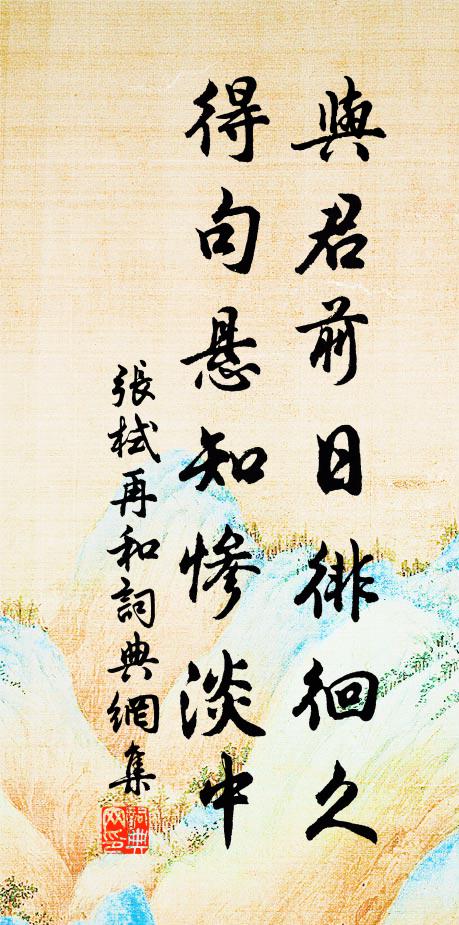 與君前日徘徊久
得句悬知慘淡中
張栻再和詞典網集
詞典網印